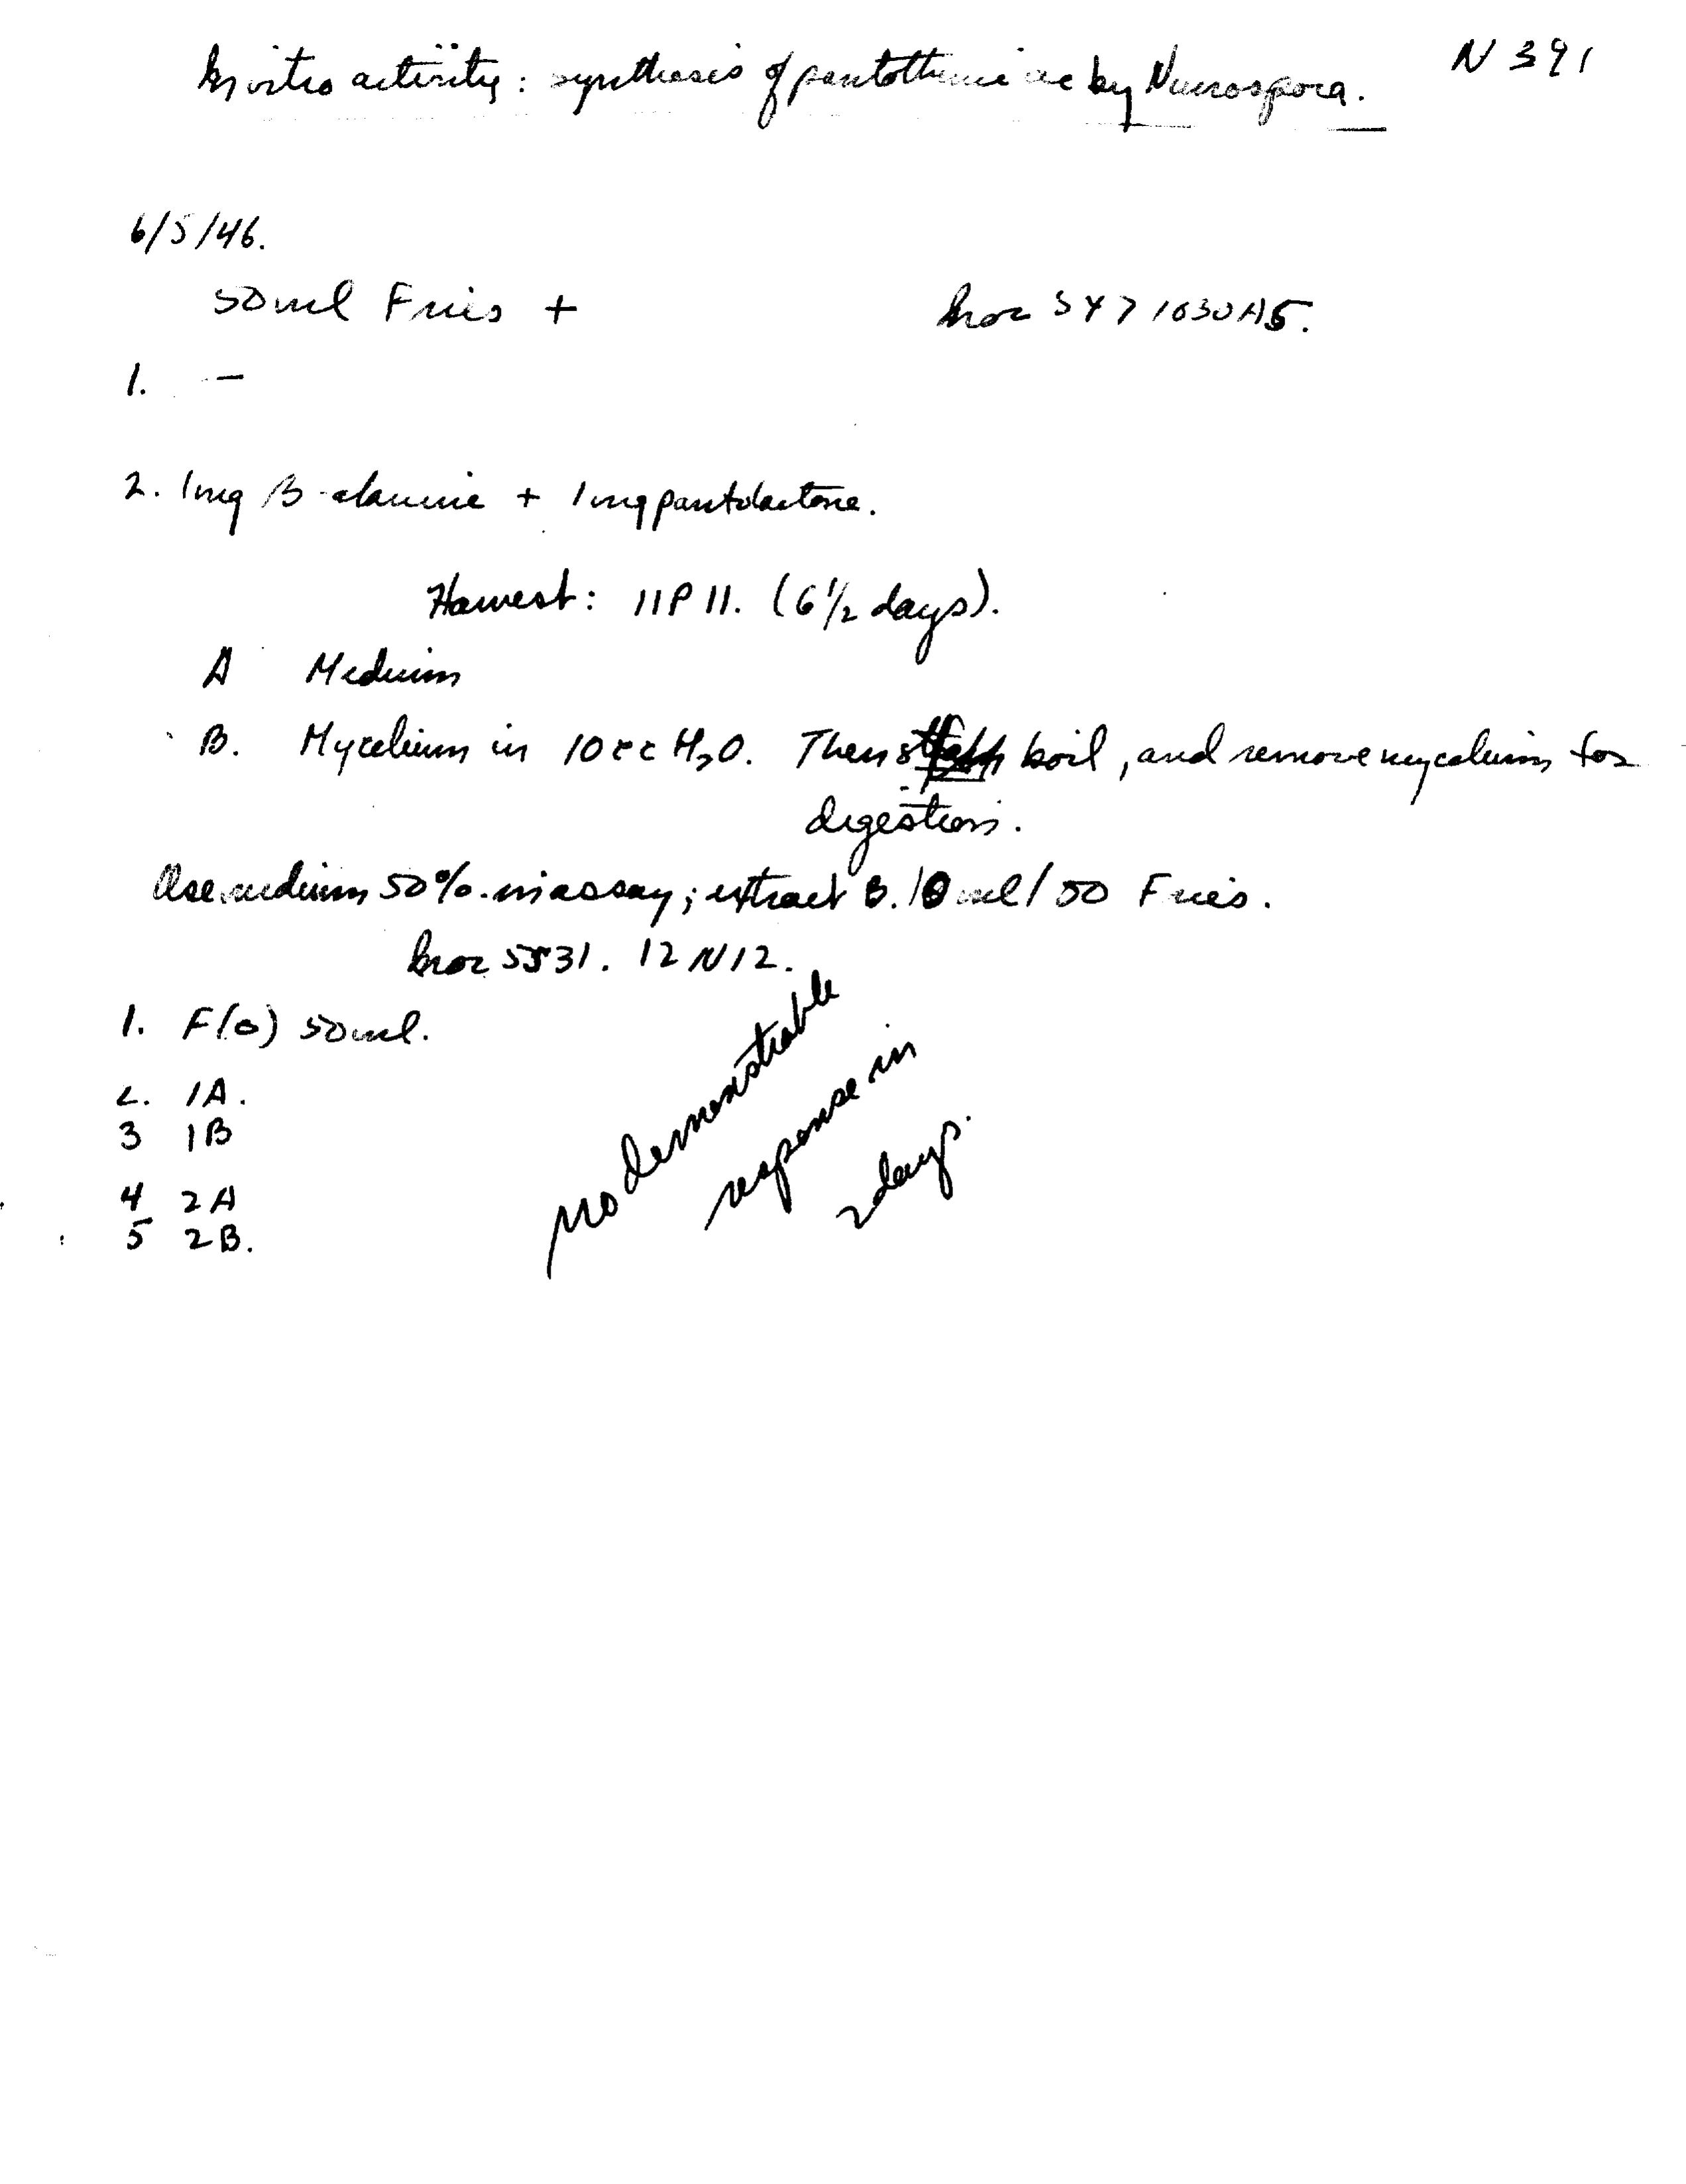 N 391
In vitro activity: synthesis of pantothenic ac by Neurospora.
6/5/46.
50 ml Fries + Inoc 547 1030A5.
1. -
2. 1mg B-alanine + 1mg pantolactone.
Harvest: 11P11. (6 1/2 days).
A Medium
B. Mycelium in 10cc H2O. Then boil, and remove mycelium for
digestion.
Use medium 50% in assay; extract B. 10 ml/50 Fries.
Inoc 5531. 12N12.
1. F(o) 50ml.
2. 1A.
3 1B
4 2A
5 2B.
no demonstrable
response in
2 days.